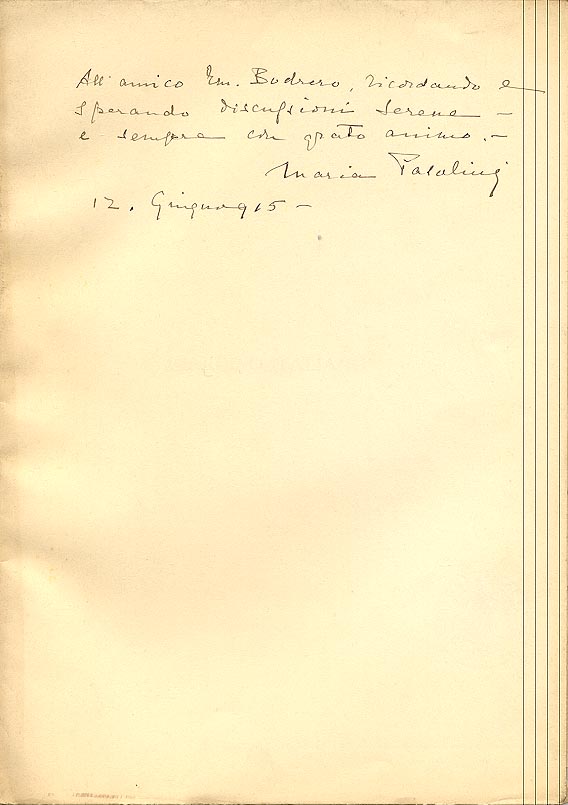 All' amico Em. Bodrero, ricordando e
sperando discussioni serene —
e sempre con grato animo. —
Maria Pasolini
12. Giugno 915 —